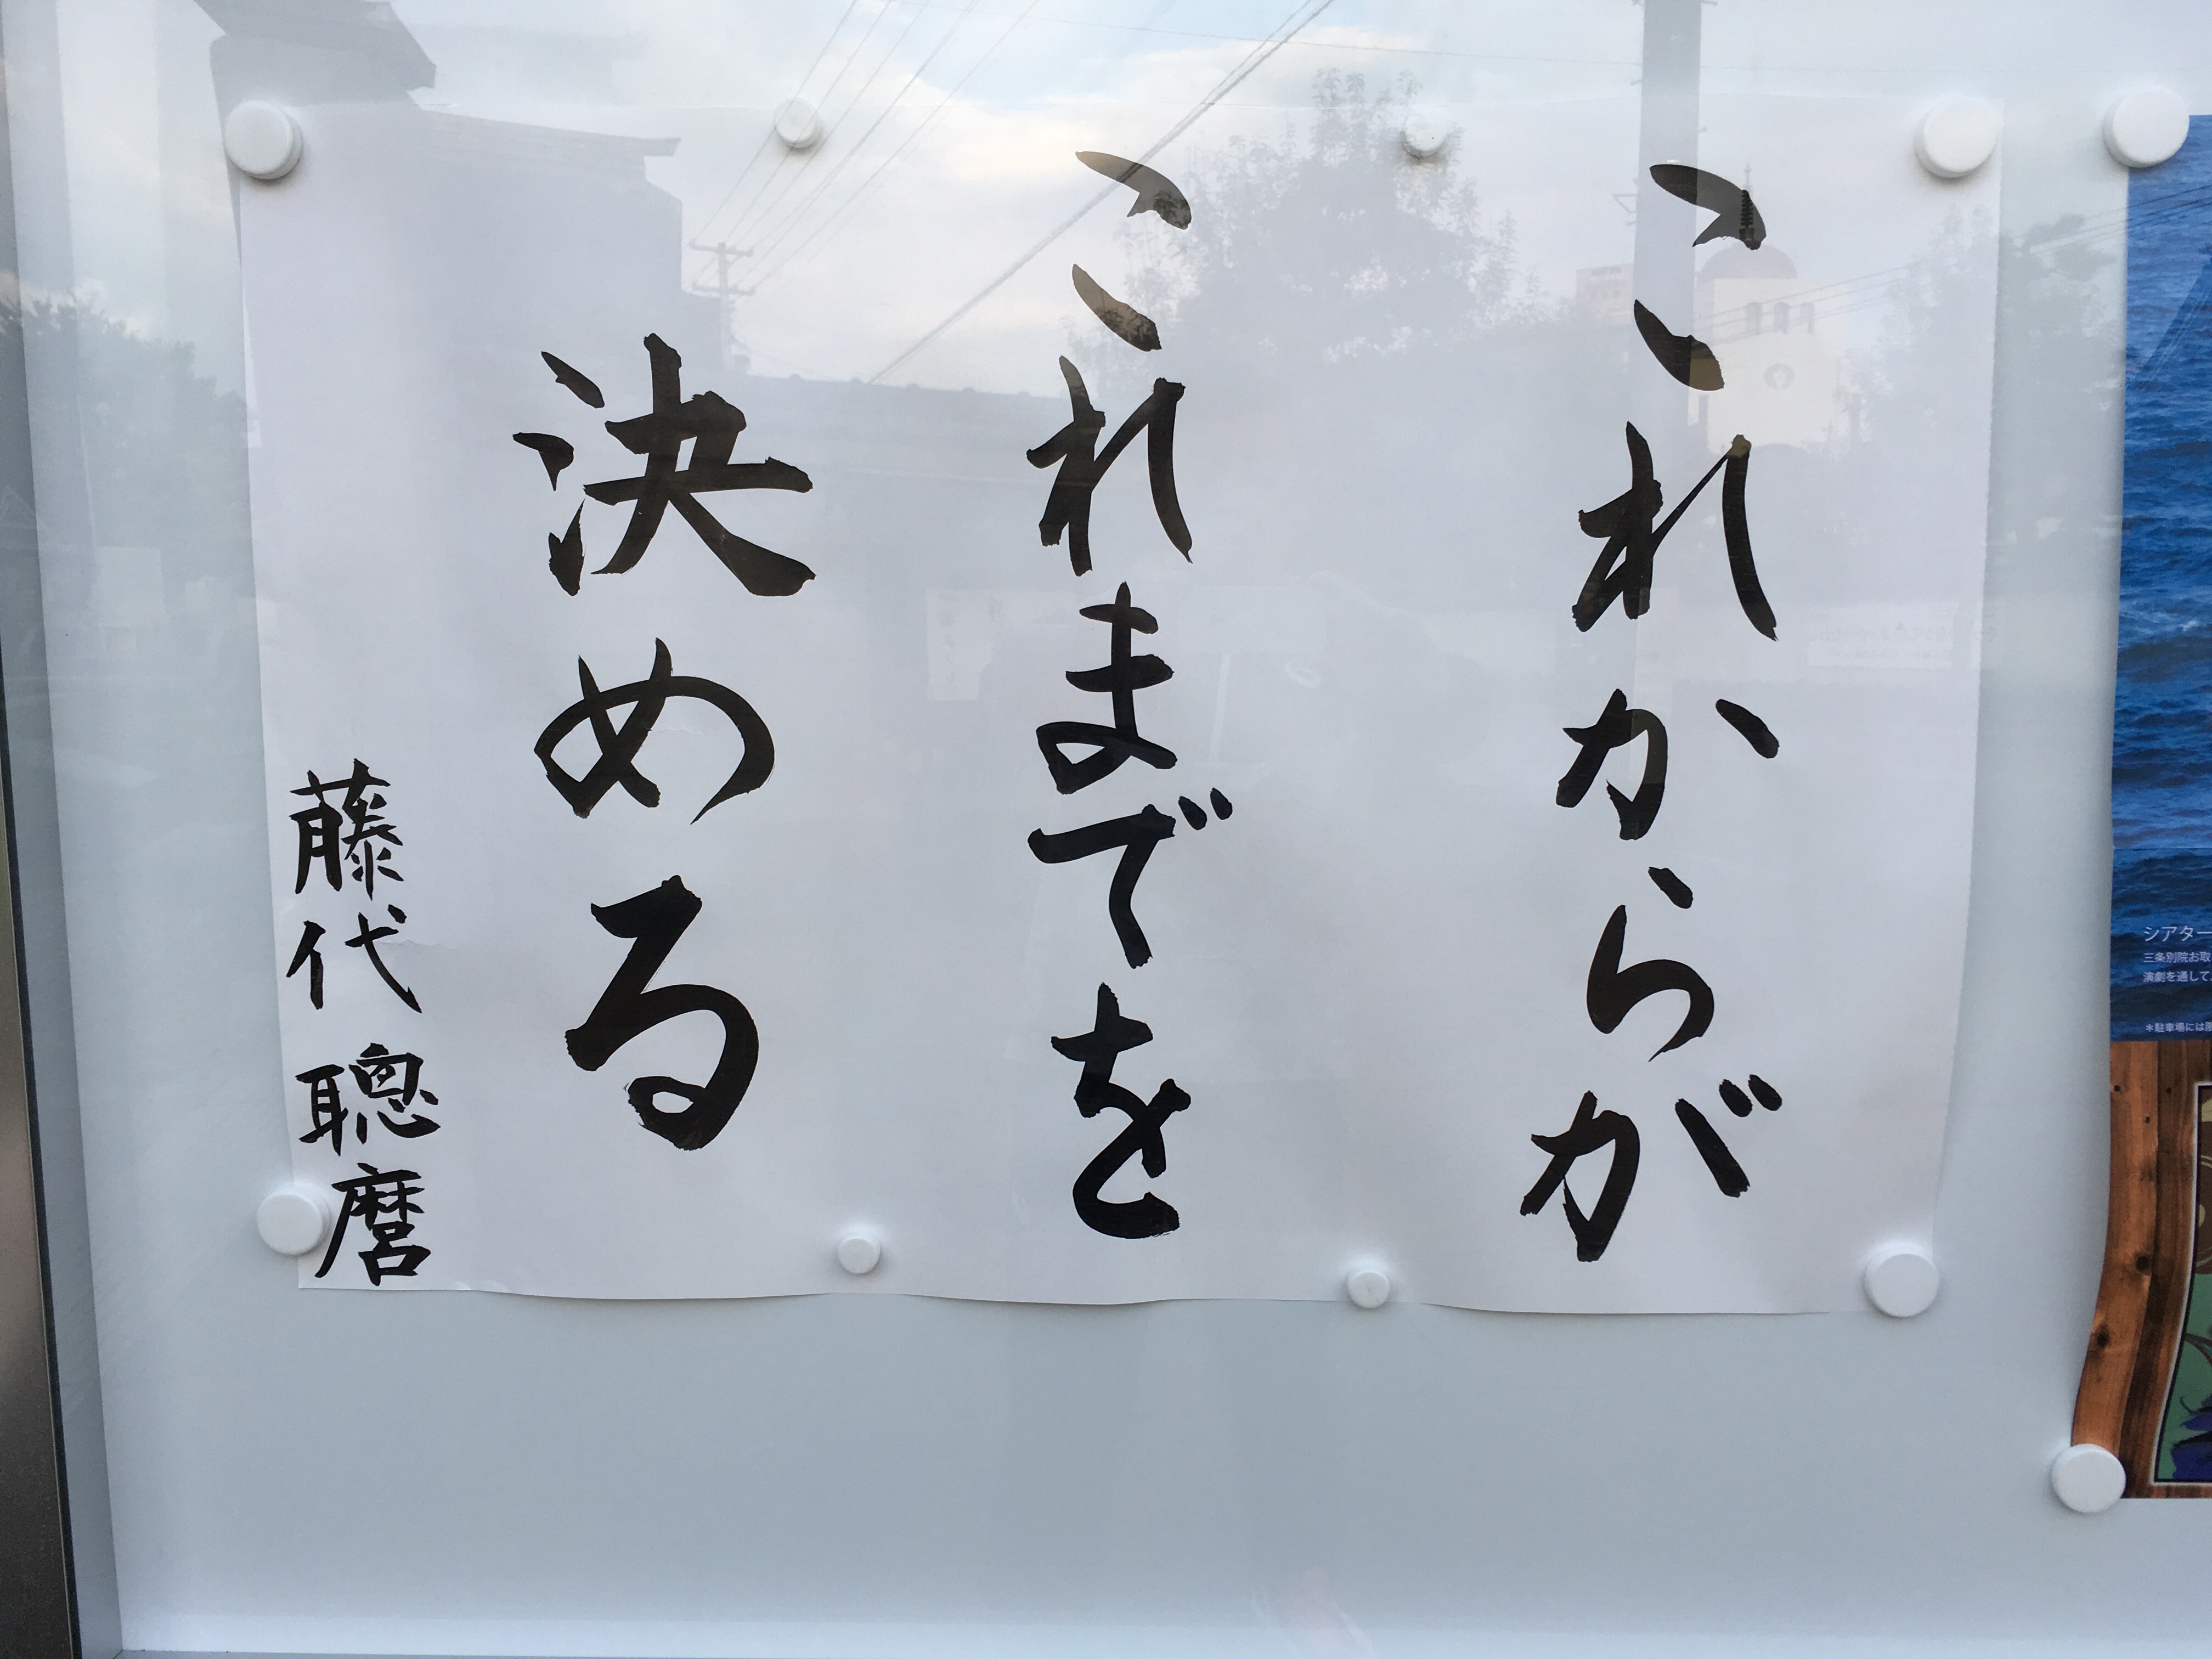 これからが
これまでを
決める
藤代 聰麿
シアター
三条別院お取
演劇を通して
＊駐車場には限